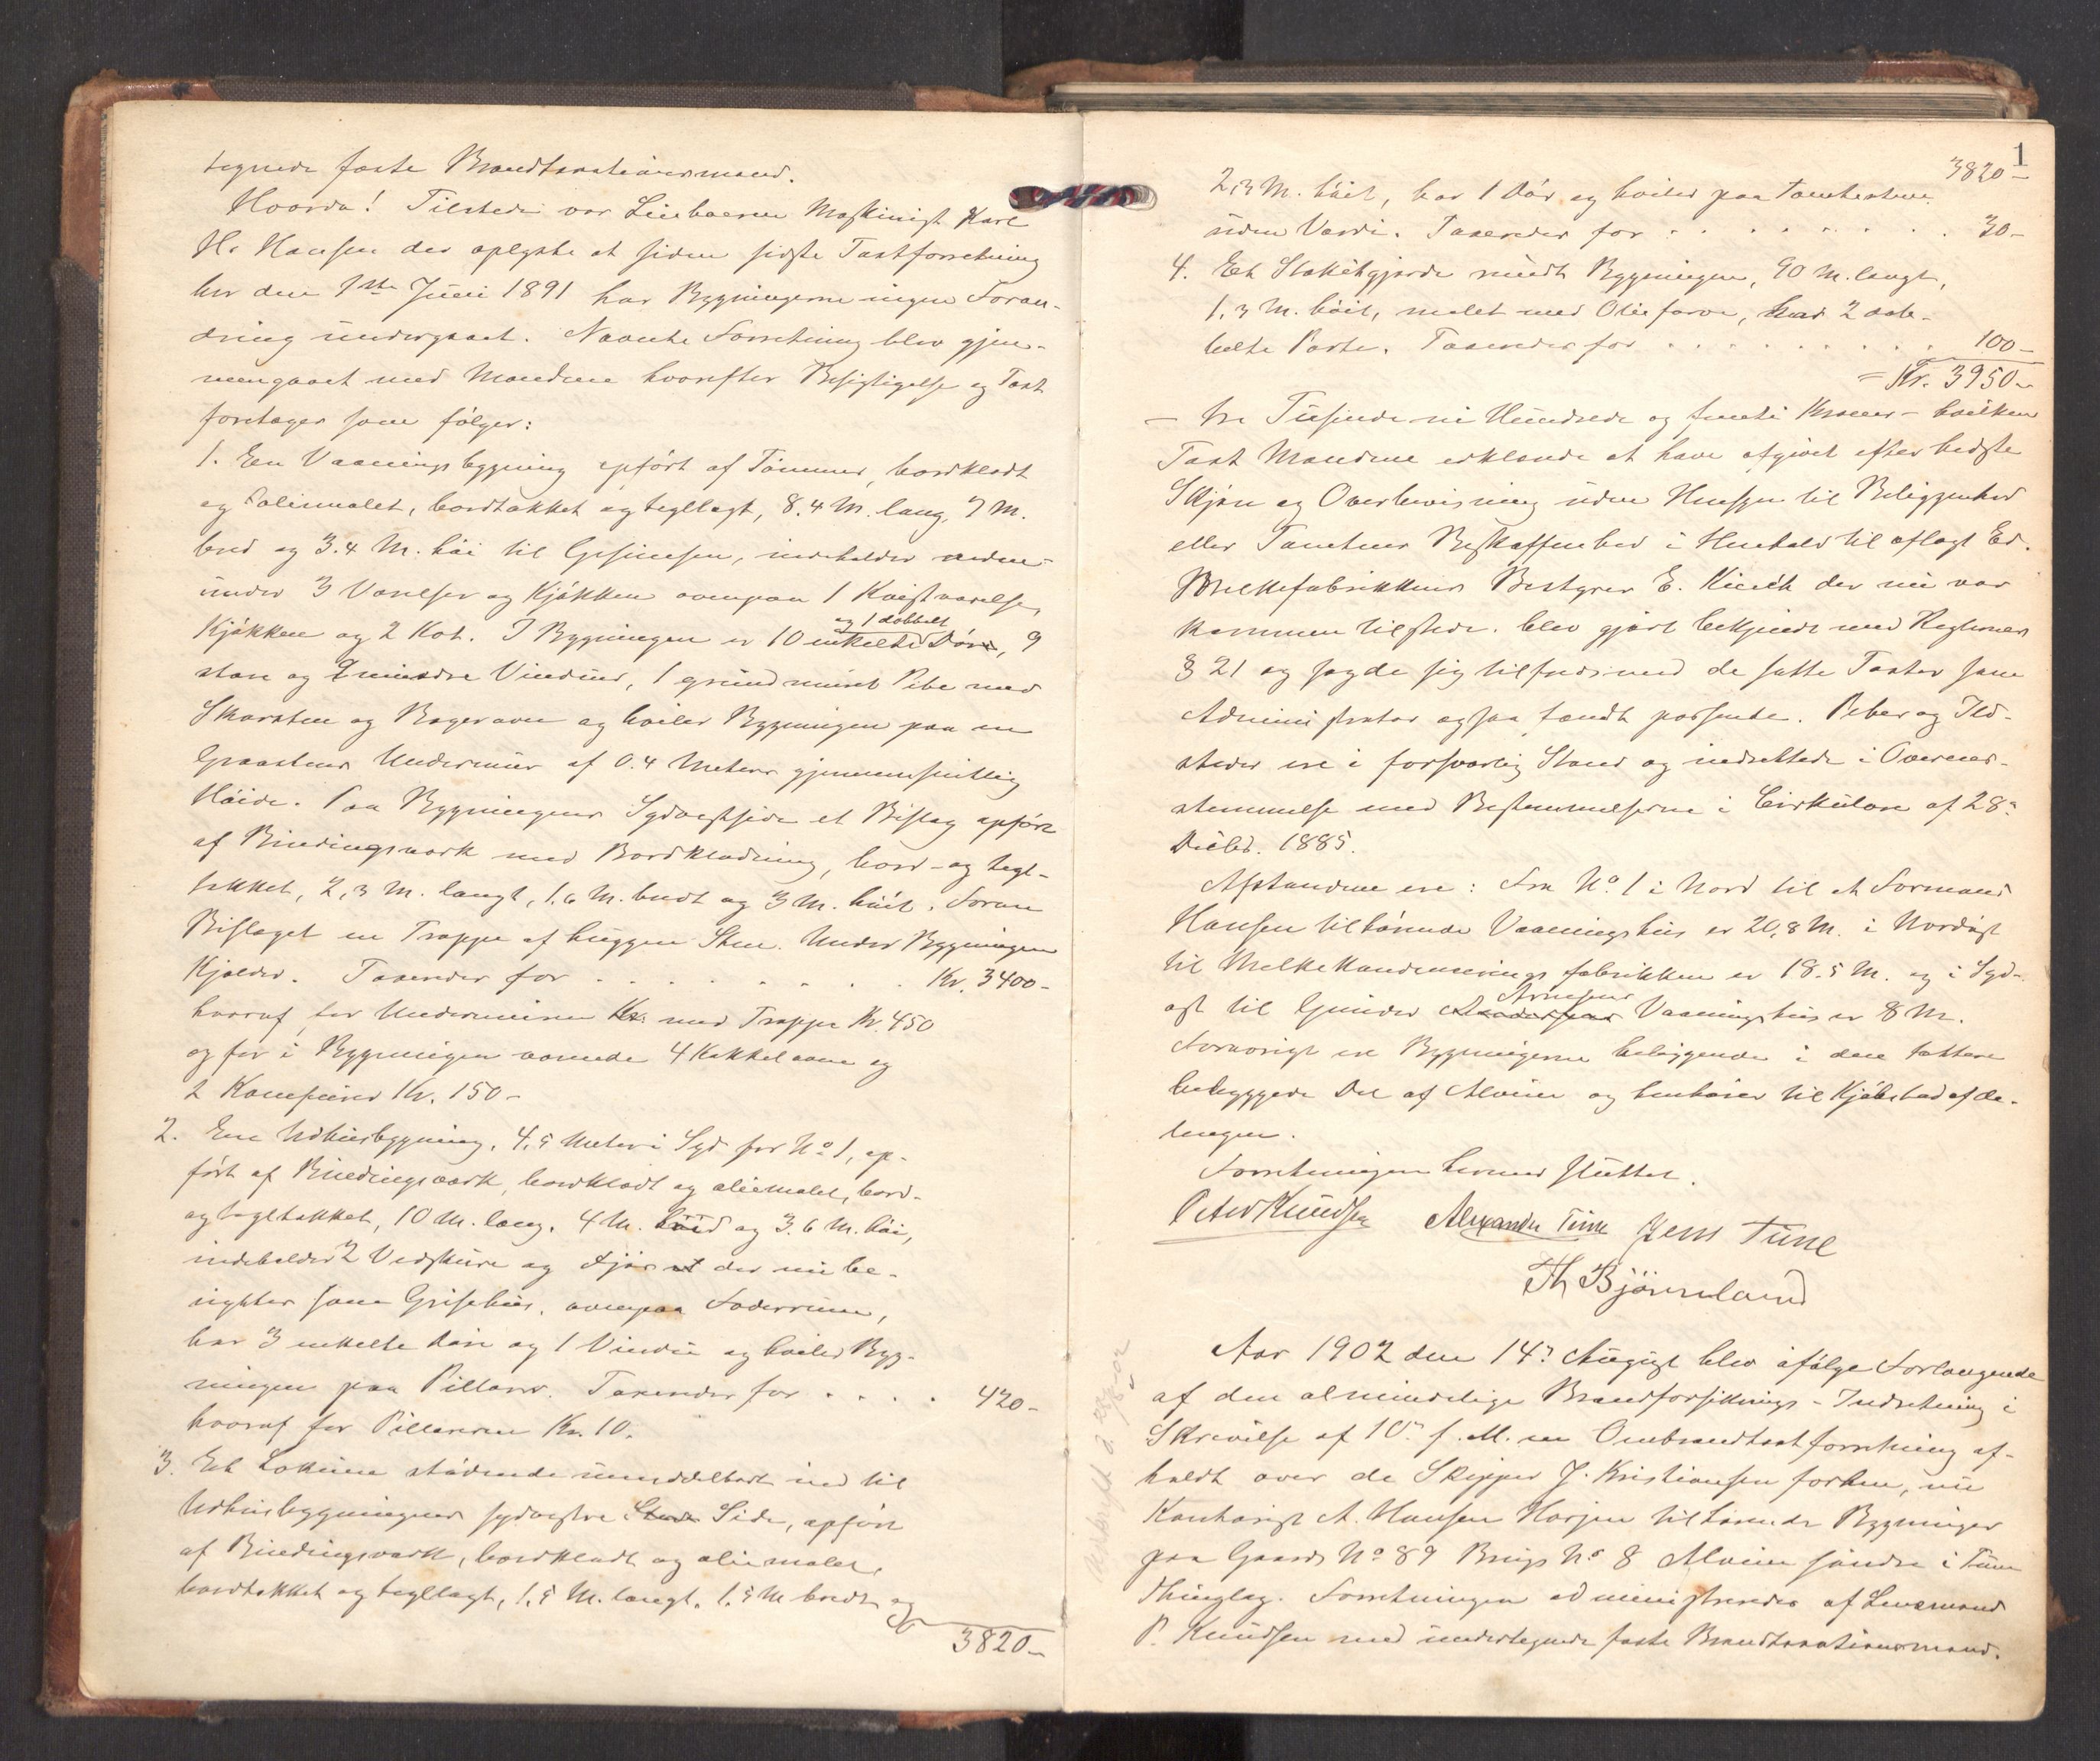 tegnede faste Brandtaxationsmænd.
Hvorda! Tilstede var Leieboeren Maskinist Karl
H. Hansen der oplyste at siden sidste Taxtforretning
her den 1ste Juni 1891 har Bygningerne ingen Foran-
dring undergaaet. Nævnte Forretning blev gjen-
nemgaaet med Mændene hvorefter Besigtigelse og Taxt
foretages som følger:
1. En Vaaningsbygning opført af Tømmer, bordklædt
og oliemalet, bordtækket og tegllagt, 8.4 M. lang, 7 M.
bred og 3.4 M. høi til Gesimsen, indeholder neden-
under 3 Værelser og Kjøkken ovenpaa 1 Kvistværelse,
Kjøkken og 2 Kot. I Bygningen er 10 enkelte og 1 dobbelt Døre, 9
store og 2 mindre Vinduer, 1 grundmuret Pibe med
Skorsten og Bagerovn og hviler Bygningen paa en
Graastens Undermur af 0.4 Meters gjennemsnitlig
Høide. Paa Bygningens Sydvestside et Bislag opført
af Bindingsværk med Bordklædning, bord- og tegl-
tækket, 2,3 M. langt, 1.6 M. bredt og 3 M. høit. Foran
Bislaget en Trappe af huggen Sten. Under Bygningen
Kjælder. Taxeredes for . . . . . . . . Kr. 3400-
hvoraf for Undermuren Kr. med Trappe Kr. 450
og for i Bygningen værende 4 Kakkelovne og
2 Komfurer Kr. 150-
2. En Udhusbygning, 4,5 Meter i Syd for No 1, op-
ført af Bindingsværk, bordklædt og oliemalet, bord-
og tegltækket, 10 M. lang, 4 M. bred og 3.6 M. høi,
indeholder 2 Vedskure og Fjøs der nu be-
nyttes som Grisehus, ovenpaa Foderrum,
har 3 enkelte Døre og 1 Vindu og hviler Byg-
ningen paa Pillarer. Taxeredes for . . . . 420-
hvoraf for Pillarerne Kr. 10.
3. Et Lokum stødende umiddelbart ind til
Udhusbygningens sydvestre Side, opført
af Bindingsværk, bordklædt og oliemalet,
bordtækket og tegllagt, 1,5 M. langt, 1.5 M bredt og
3820-
1
3820-
2,3 M. høit, har 1 Dør og hviler paa Tomtestene
uden Værdi. Taxeredes for . . . . . . . . . 30-
4. Et Stakitgjærde rundt Bygningen, 90 M. langt,
1,3 M. høit, malet med Oliefarve, har 2 dob-
belte Porte. Taxeredes for . . . . . . . . . 100-
= Kr. 3950-
- tre Tusinde ni Hundrede og femti Kroner - hvilken
Taxt Mændene erklærede at have afgivet efter bedste
Skjøn og Overbevisning uden Hensyn til Beliggenhed
eller Tomtens Beskaffenhed i Henhold til aflagt Ed.
Melkefabrikkens Bestyrer E. der nu var
kommen tilstede, blev gjort bekjendt med Reglernes
§ 21 og sagde sig tilfreds med de satte Taxter som
Administrator ogsaa fandt passende. Piber og Ild-
steder ere i forsvarlig Stand og indrettede i Overens-
stemmelse med Bestemmelserne i Cirkulære af 28de
Decbr. 1885.
Afstandene ere: Fra No 1 i Nord til A Formand
Hansen tilhørende Vaaningshus er 20,8 M. i Nordøst
til Melkekondenserings fabrikken er 18.5 M. og i Syd-
øst til Gunder Arnesens Vaaningshus er 8 M.
Forøvrigt ere Bygningerne beliggende i den tættere
bebyggede Del af Alvim og henhører til Kjøbstadafde-
lingen.
Forretningen hermed sluttet.
Peter Knudsen Alexander Tune Jens Tune
Th Bjørnland
Aar 1902 den 14de August blev ifølge Forlangende
af den almindelige Brandforsikrings-Indretning i
Skrivelse af 10de f. M. en Ombrandtaxtforretning af-
holdt over de Skipper J. Kristiansen forhen, nu
Kontorist A. Hansen Horjen tilhørende Bygninger
paa Gaards No 89 Brugs No 8 Alvim søndre i Tune
Thinglag. Forretningen administreredes af Lensmand
P. Knudsen med undertegnede faste Brandtaxationsmænd.